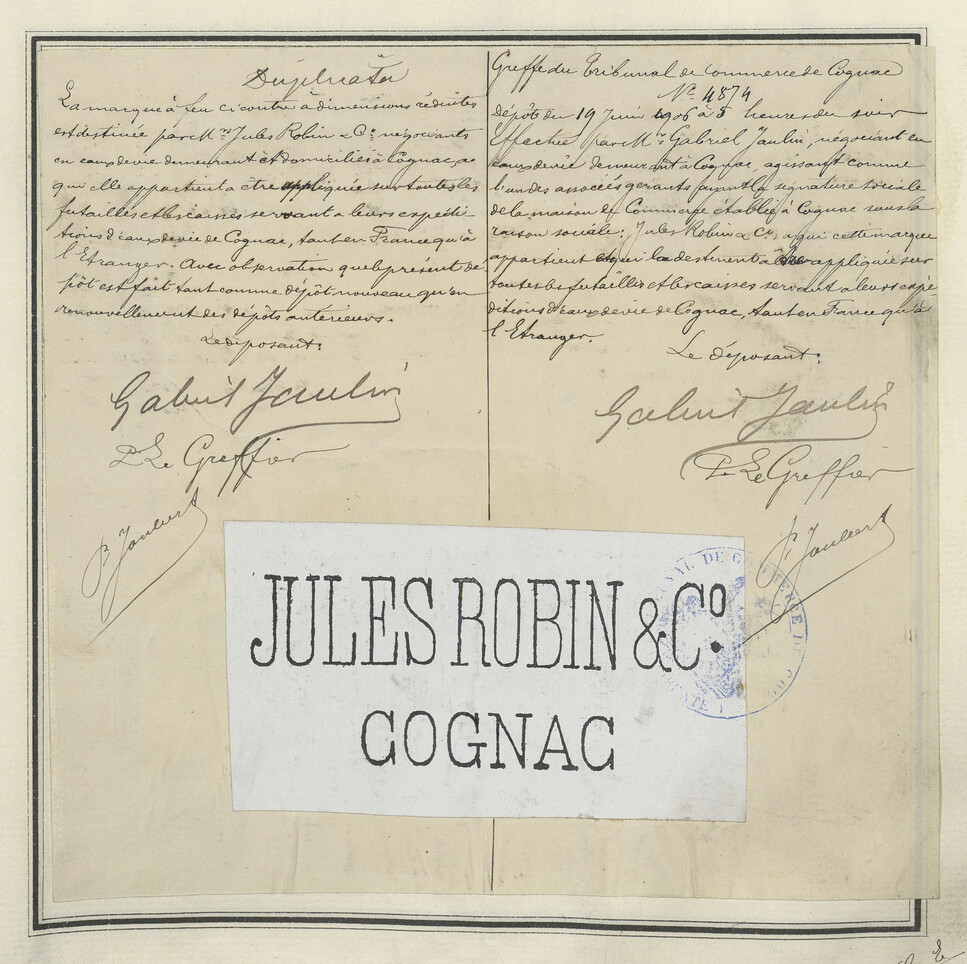 Duplicata
La marque à feu ci contre à dimensions réduites
est destinée par M.rs Jules Robin & C.o négociants
en eaux de vie demeurant et domiciliés à Cognac, à
qui elle appartient a être appliquée sur toutes les
futailles et les caisses servant a leurs expédi
tions d'eaux de vie de Cognac, tant en France qu'à
l'Etranger. Avec observation que le présent dé
pôt est fait tant comme dépôt nouveau qu'en
renouvellement des dépôts antérieurs.
Le déposant:
Gabriel Jaulin
P. Le Greffier
P. Joubert
Greffe du Tribunal de Commerce de Cognac
N.o 4874
Dépôt du 19 Juin 1906 à 5 heures du soir
Effectué par M.r Gabriel Jaulin, négociant en
eaux de vie demeurant à Cognac, agissant comme
l'un des associés gérants ayant la signature sociale
de la maison de Commerce établie à Cognac sous la
raison sociale: Jules Robin & C.o, a qui cette marque
appartient et qui la destinent a être appliquée sur
toutes les futailles et les caisses servant a leurs expé-
ditions d'eaux de vie de Cognac, tant en France qu'à
l'Etranger.
Le déposant:
Gabriel Jaulin
P. Le Greffier
P. Joubert
JULES ROBIN & Cº.
COGNAC